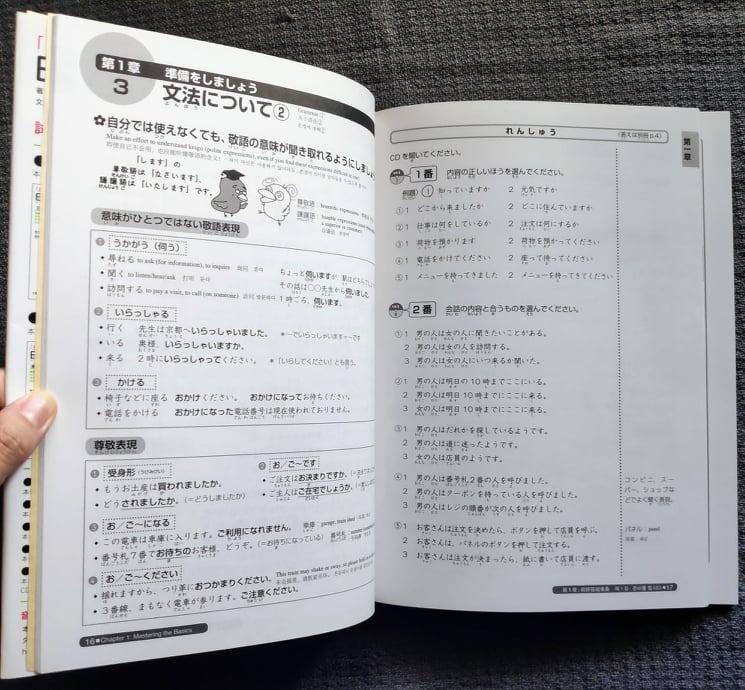 第1章 準備をしましょう
3 文法について②
Grammar ②
✿自分では使えなくても、敬語の意味が聞き取れるようにしましょう
Make an effort to understand keigo (polite expressions), even if you find these expressions difficult
「します」の
尊敬語は「なさいます」、
謙譲語は「いたします」です。
尊敬語
謙譲語
意味がひとつではない敬語表現
① うかがう（伺う）
• 尋ねる to ask (for information), to inquire ちょっと伺いますが、駅は
• 聞く to listen/hear/ask その話は○○先生から伺いました。
• 訪問する to pay a visit, to call (on someone) 1時ごろ、伺います。
② いらっしゃる
• 行く 先生は京都へいらっしゃいました。 *～でいらっしゃいます＝～です
• いる 奥様、いらっしゃいますか。
• 来る 2時にいらっしゃってください。 *「いらしてください」とも言う。
③ かける
• 椅子などに座る おかけください。 おかけになってお待ちください。
• 電話をかける おかけになった電話番号は現在使われておりません。
尊敬表現
① 受身形（うけみけい）
• もうお土産は買われましたか。
• どうされましたか。（＝どうしましたか）
② お／ご～です
• ご注文はお決まりですか。
• ご主人はご在宅でしょうか。
③ お／ご～になる
• この電車は車庫に入ります。ご利用になれません。 車庫：garage, train shed
• 番号札7番でお待ちのお客様、どうぞ。（＝お待ちになっている） 番号札
④ お／ご～ください
• 揺れますから、つり革におつかまりください。 This train may shake or sway, so please hold
• 3番線、まもなく電車が参ります。ご注意ください。
16●Chapter 1: Mastering the Basics
れんしゅう （答えは別冊 p.4）
第一章
CDを聞いてください。
1番 内容の正しいほうを選んでください。
例題) ① 知っていますか 2 元気ですか
①1 どこから来ましたか 2 どこに住んでいますか
②1 仕事は何をしているか 2 注文は何にするか
③1 荷物を預かります 2 荷物を預かってください
④1 電話をかけてください 2 座って待ってください
⑤1 メニューを持ってきました 2 メニューを持ってきてください
2番 会話の内容と合うものを選んでください。
①1 男の人は女の人に聞きたいことがある。
2 男の人は女の人を訪問する。
3 男の人は女の人にいつ来るか聞いた。
②1 男の人は明日の10時までここにいる。
2 男の人は明日10時までにここに来る。
3 女の人は明日10時までにここに来る。
③1 男の人はだれかを探しているようです。
2 男の人は道に迷ったようです。
3 女の人は店員のようです。
④1 男の人は番号札2番の人を呼びました。
2 男の人はクーポンを持っている人を呼びました。
3 男の人はレジの順番が次の人を呼びました。
コンビニ、スー
パー、ショップな
どでよく聞く表現。
⑤1 お客さんは注文を決めたら、ボタンを押して店員を呼ぶ。
2 お客さんは、パネルのボタンを押して注文する。
3 お客さんは注文が決まったら、紙に書いて店員に渡す。
パネル panel